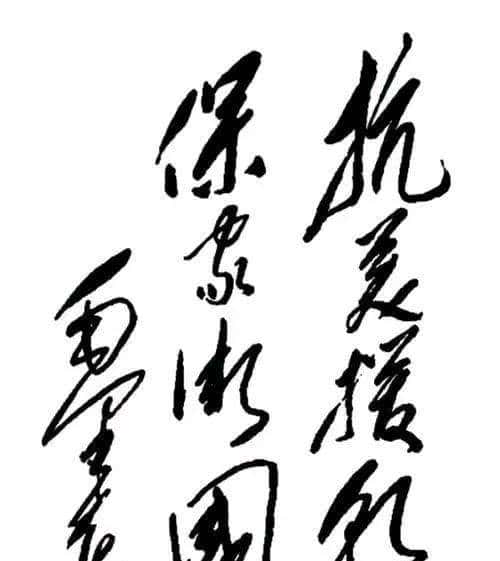 抗美援朝
保家衛國
毛泽东